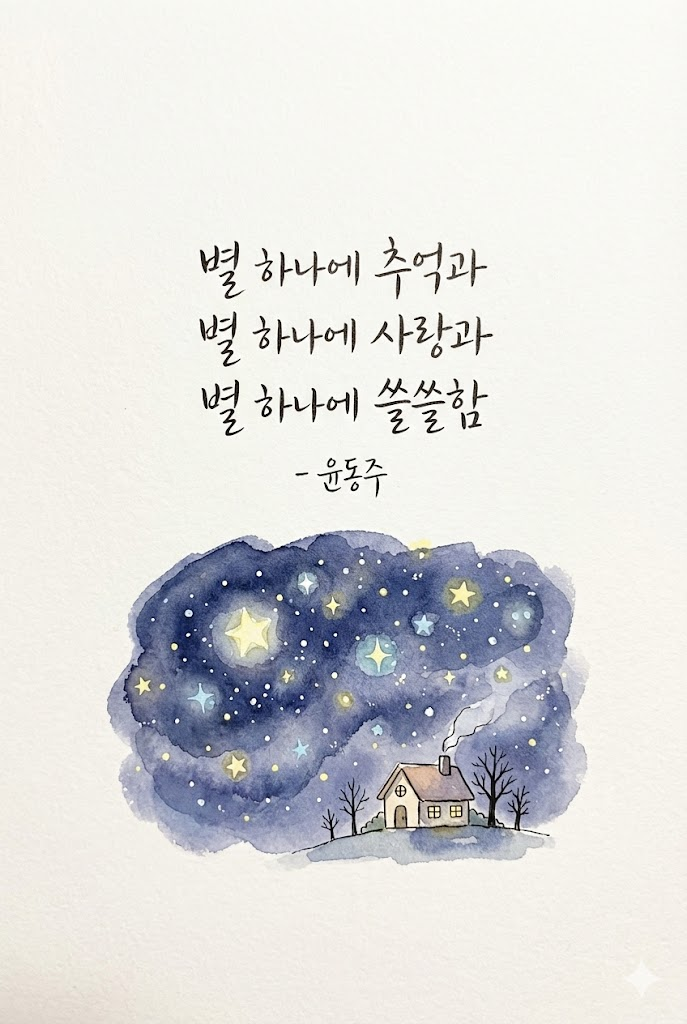 별 하나에 추억과
별 하나에 사랑과
별 하나에 쓸쓸함
- 윤동주